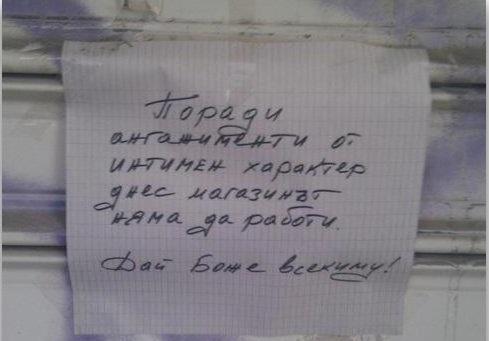 Поради
анганименти от
интимен характер
днес магазинът
няма да работи.
Дай Боже всекиму!